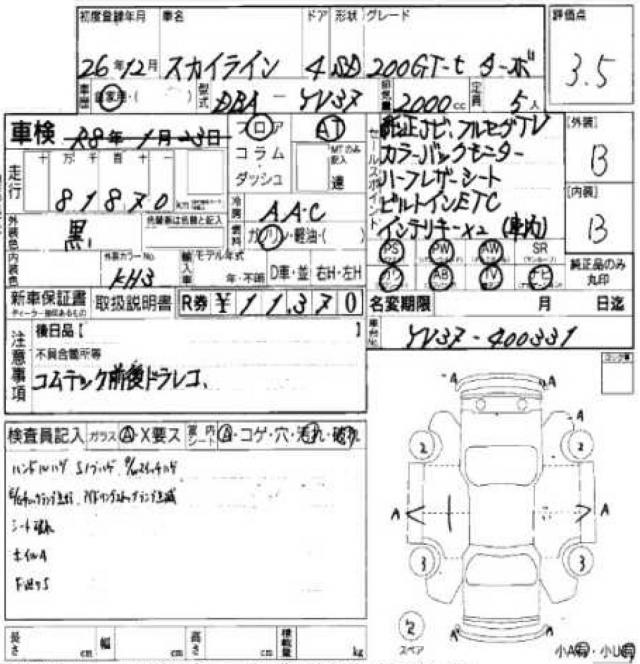 初度登録年月 車名 ドア 形状 グレード 評価点
26年12月 スカイライン 4 SD 200GT-t ターボ 3.5
車歴 自家用・( ) 型式 DBA-YV37 排気量 2000cc 定員 5人
車検 R8年1月23日 フロア AT
コラム・ダッシュ MTのみ記入 速
セールスポイント
純正ナビ、フルセグTV
カラーバックモニター
ハーフレザーシート
ビルトインETC
インテリキー×2 (車内)
[外装] B
[内装] B
走行 十万千百十一
81870km
冷房 AAC
外装色 黒 色替車は元色を記入
燃料 ガソリン・軽油・( )
PS PW AW SR
AB TV ナビ
純正品のみ丸印
内装色 外装カラーNo. KH3
輸入車 モデル年式 年・不明 D車・並 右H・左H
新車保証書 取扱説明書 R券 ¥11,370
ディーラー捺印あるもの
名変期限 月 日迄
車台No. YV37-400331
注意事項
後日品【 】
不具合箇所等
コムテック前後ドラレコ、
コック車
検査員記入 ガラス A・X要ス 室内シート A・コゲ・穴・汚れ・破れ
シート破れ
ホイルA
下廻りS
A A
2 2
A A
3 3
2
スペア
A A
小A有・小U有
長さ cm 幅 cm 高さ cm 積載量 kg